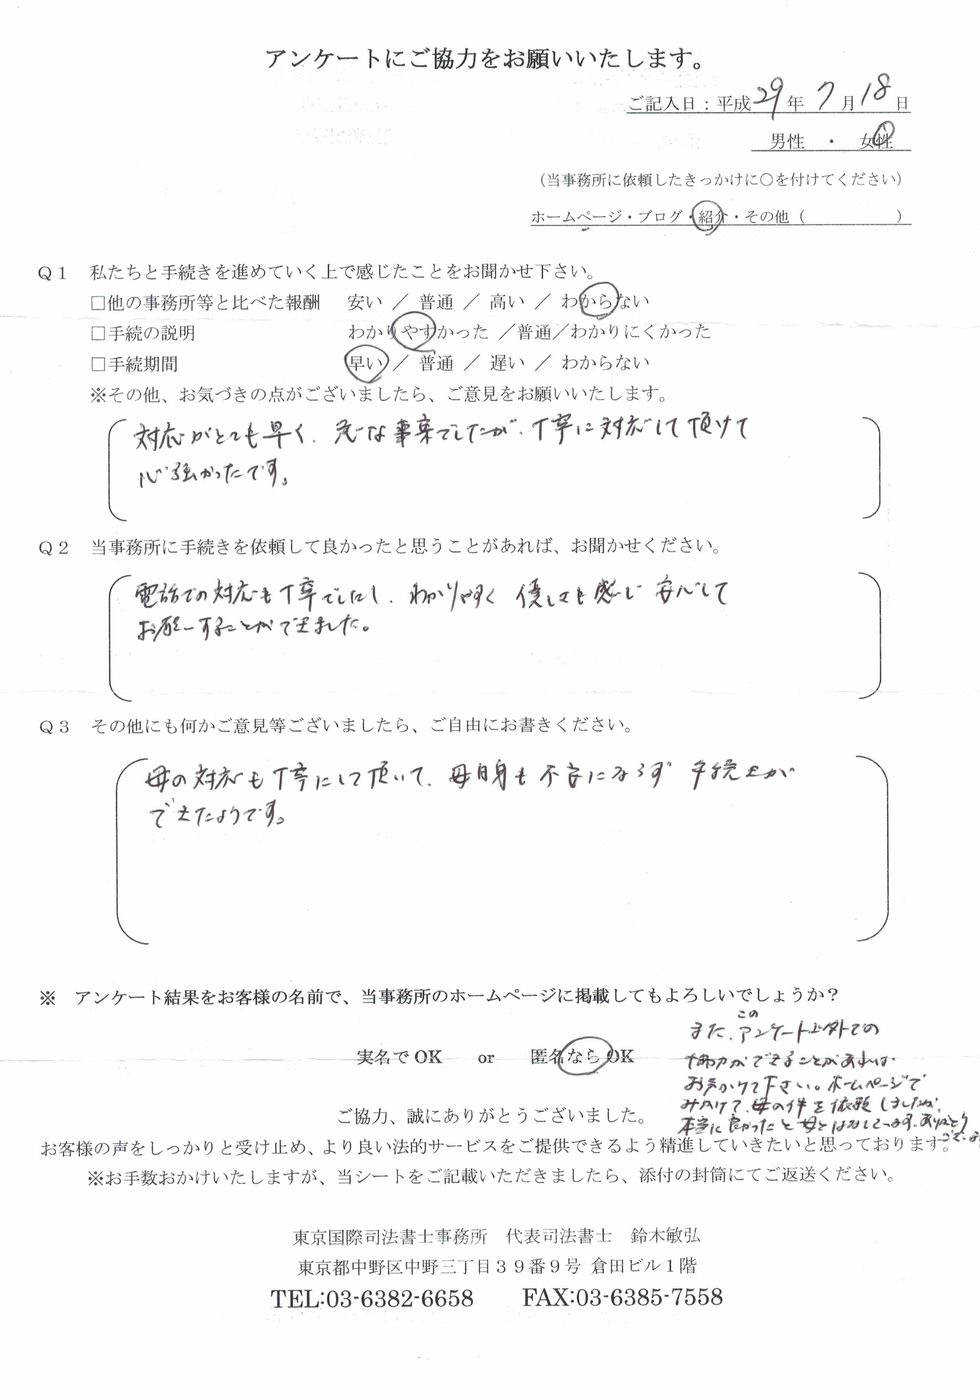 アンケートにご協力をお願いいたします。
ご記入日：平成29年7月18日
男性　・　女性
（当事務所に依頼したきっかけに○を付けてください）
ホームページ・ブログ・紹介・その他（　　　　　）
Q１　私たちと手続きを進めていく上で感じたことをお聞かせ下さい。
□他の事務所等と比べた報酬　安い ／ 普通 ／ 高い ／ わからない
□手続の説明　わかりやすかった ／普通／わかりにくかった
□手続期間　早い ／ 普通 ／ 遅い ／ わからない
※その他、お気づきの点がございましたら、ご意見をお願いいたします。
対応がとても早く、急な事案でしたが、丁寧に対応して頂けて
心強かったです。
Q２　当事務所に手続きを依頼して良かったと思うことがあれば、お聞かせください。
電話での対応も丁寧でしたし、わかりやすく 優しさも感じ 安心して
お願いすることができました。
Q３　その他にも何かご意見等ございましたら、ご自由にお書きください。
母の対応も丁寧にして頂いて、母自身も不安にならず 手続きが
できたようです。
※　アンケート結果をお客様の名前で、当事務所のホームページに掲載してもよろしいでしょうか？
実名でOK　or　匿名ならOK
また、このアンケート以外での
協力ができることがあれば
お声かけて下さい。ホームページで
みかけて、母の件を依頼しましたが、
本当に良かったと母とはなしています。ありがとう
ご協力、誠にありがとうございました。
お客様の声をしっかりと受け止め、より良い法的サービスをご提供できるよう精進していきたいと思っております。
※お手数おかけいたしますが、当シートをご記載いただきましたら、添付の封筒にてご返送ください。
東京国際司法書士事務所　代表司法書士　鈴木敏弘
東京都中野区中野三丁目３９番９号 倉田ビル１階
TEL:03-6382-6658　FAX:03-6385-7558